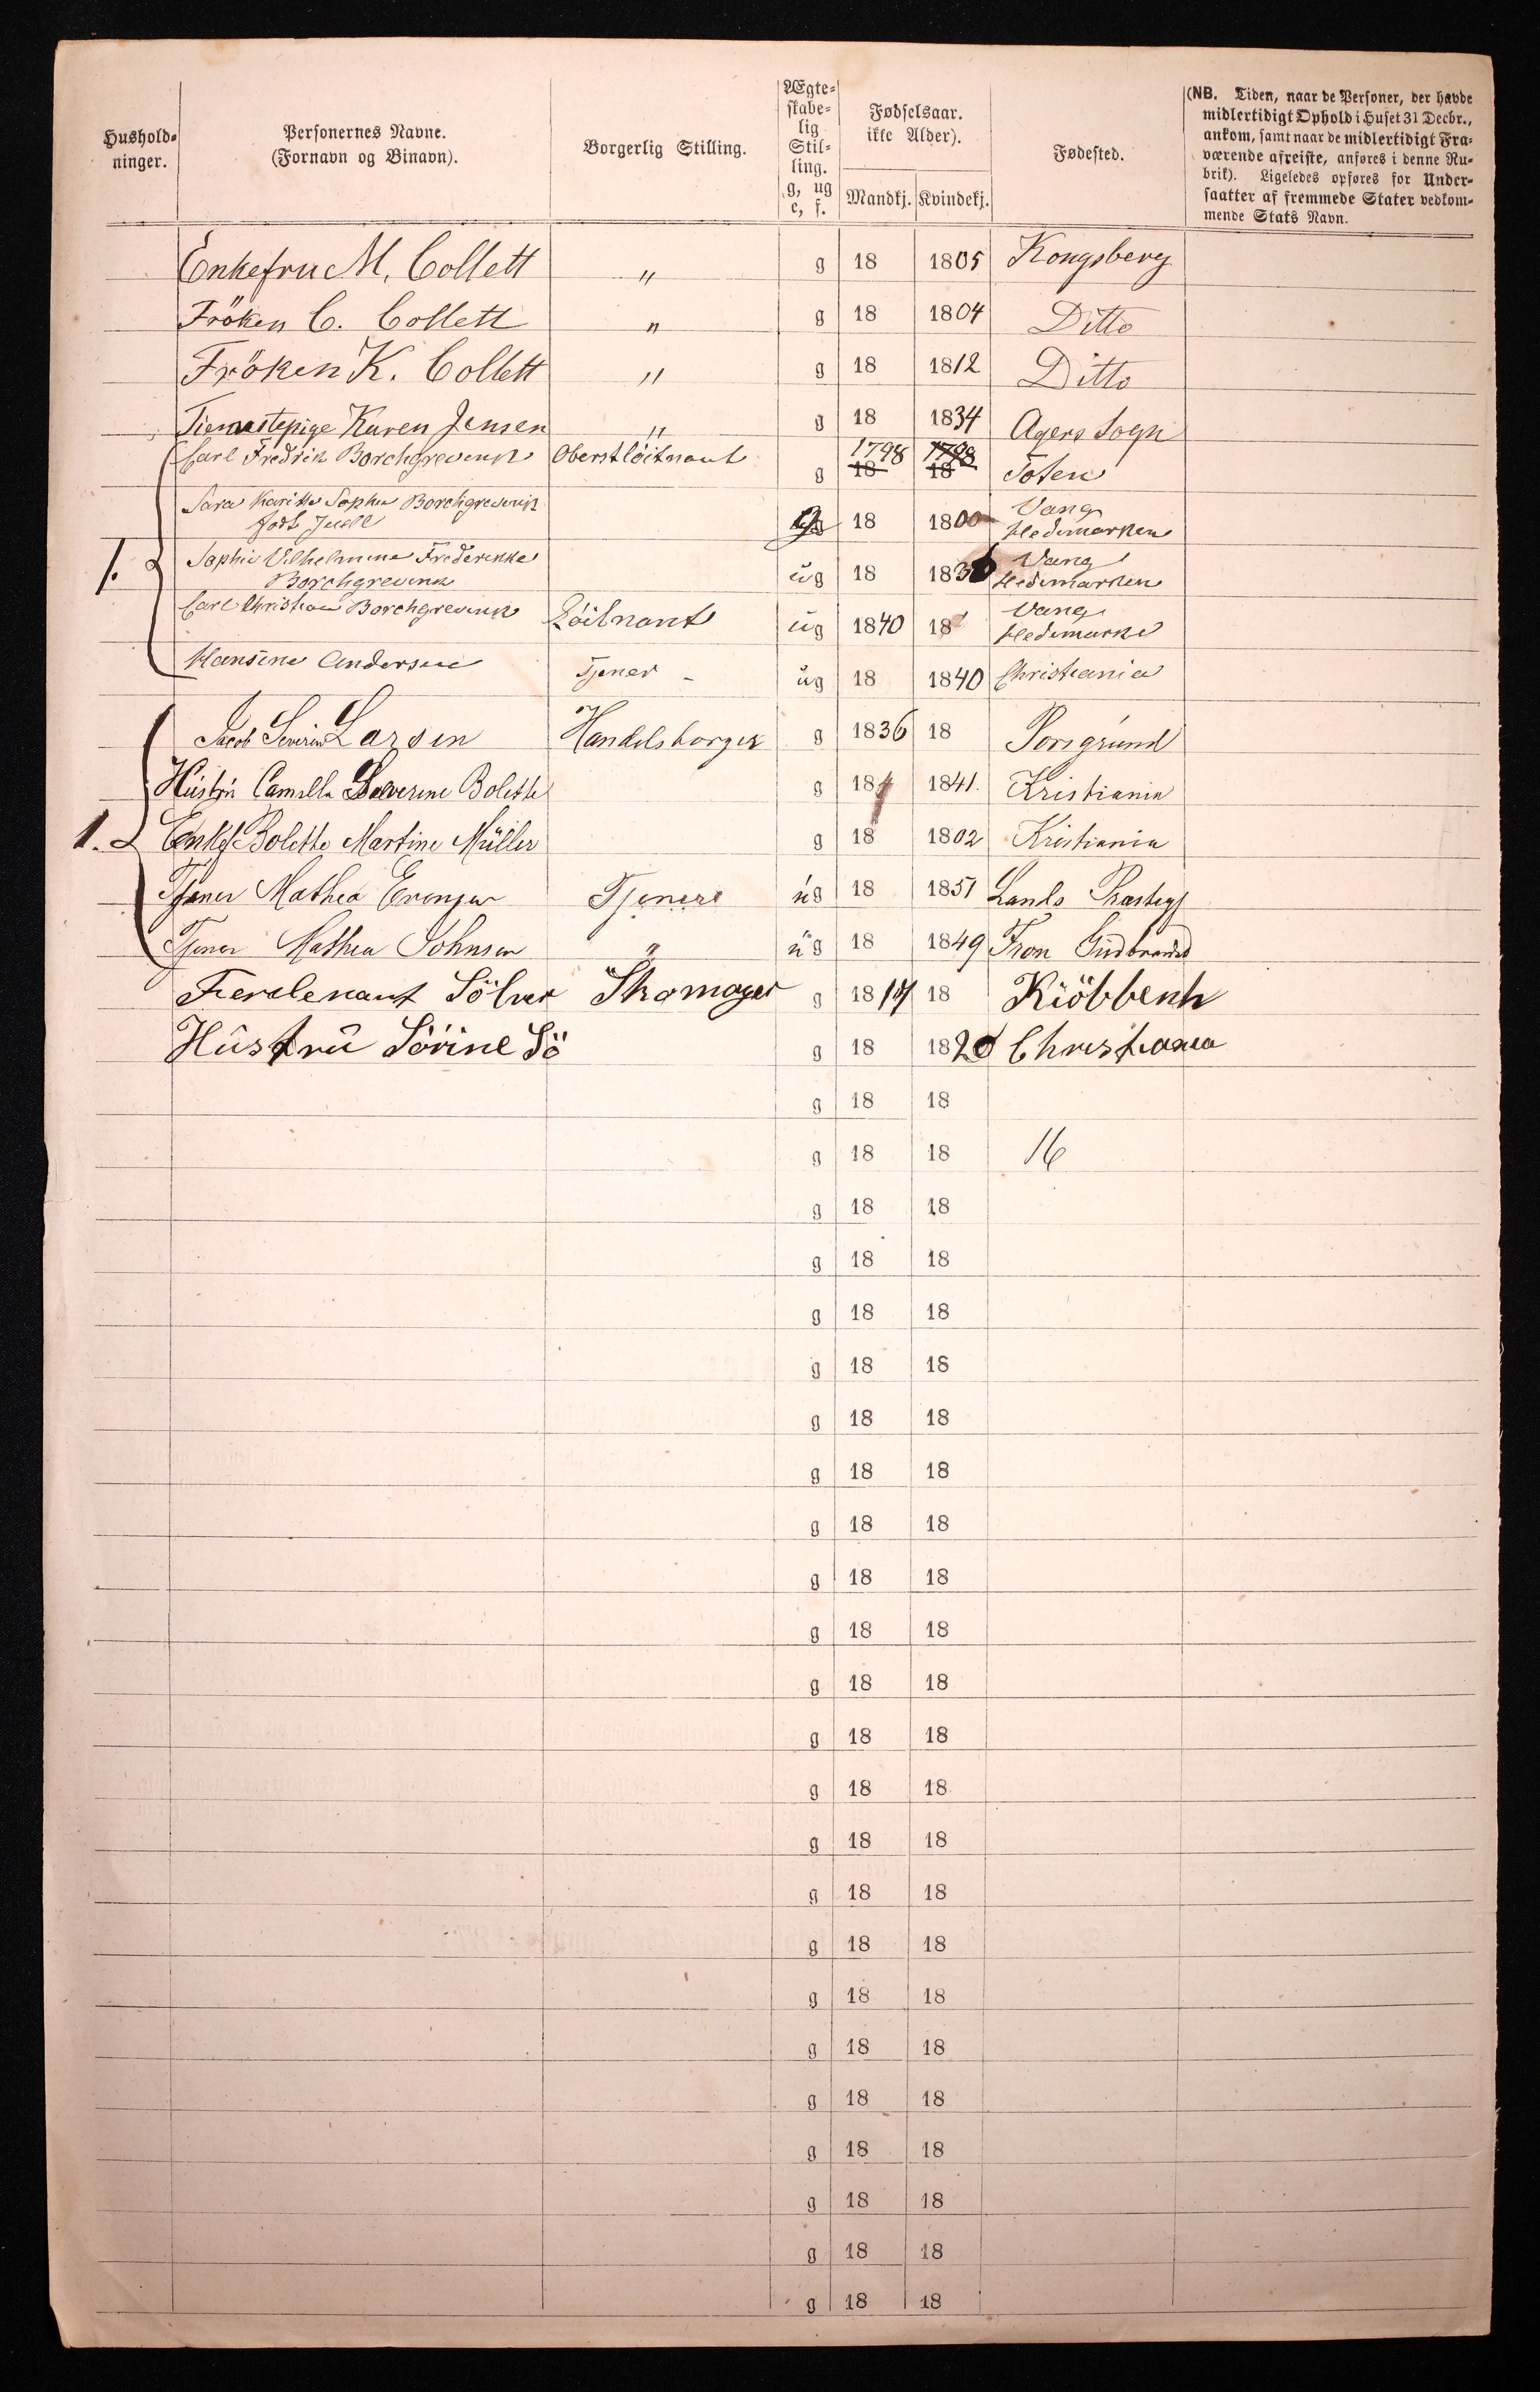 Hushold-
ninger.
Personernes Navne.
(Fornavn og Binavn).
Borgerlig Stilling.
Ægte-
skabe-
lig
Stil-
ling.
g, ug
e, f.
Fødselsaar.
ikke Alder).
Mandkj. Kvindekj.
Fødested.
(NB. Tiden, naar de Personer, der havde
midlertidigt Ophold i Huset 31 Decbr.,
ankom, samt naar de midlertidigt Fra-
værende afreiste, anføres i denne Ru-
brik). Ligeledes opføres for Under-
saatter af fremmede Stater vedkom-
mende Stats Navn.
Enkefru M. Collett " g 18 1805 Kongsberg
Fröken C. Collett " g 18 1804 Ditto
Fröken K. Collett " g 18 1812 Ditto
Tienestepige Karen Jensen " g 18 1834 Agers Sogn
Carl Fredrik Borchgrevink Oberstlöitnant g 1798 18 1798 18 Toten
Sara Karitha Sophie Borchgrevink
födt Juell g 18 1800 Vang
Hedemarken
1. Sophie Vilhelmine Frederikke
Borchgrevink ug 18 1836 Vang
Hedemarken
Carl Christian Borchgrevink Löitnant ug 1840 18 Vang
Hedemarke
Hansine Andersen Tjener - ug 18 1840 Christiania
Jacob Severin Larsen Handelsborger g 1836 18 Porsgrund
Hustru Camilla Severine Bolethe g 18 1841. Kristiania
1. Enkef Bolethe Martine Müller g 18 1802 Kristiania
Tjener Mathea Evensen Tjenere ug 18 1851 Lands Præstegj
Tjener Mathea Johnsen " ug 18 1849 Fron Gudbrandsd
Ferdenant Sölver Skomager g 1817 18 Kiöbbenh
Hustru Sörine Sö g 18 1820 Christiania
g 18 18
g 18 18 16
g 18 18
g 18 18
g 18 18
g 18 18
g 18 18
g 18 18
g 18 18
g 18 18
g 18 18
g 18 18
g 18 18
g 18 18
g 18 18
g 18 18
g 18 18
g 18 18
g 18 18
g 18 18
g 18 18
g 18 18
g 18 18
g 18 18